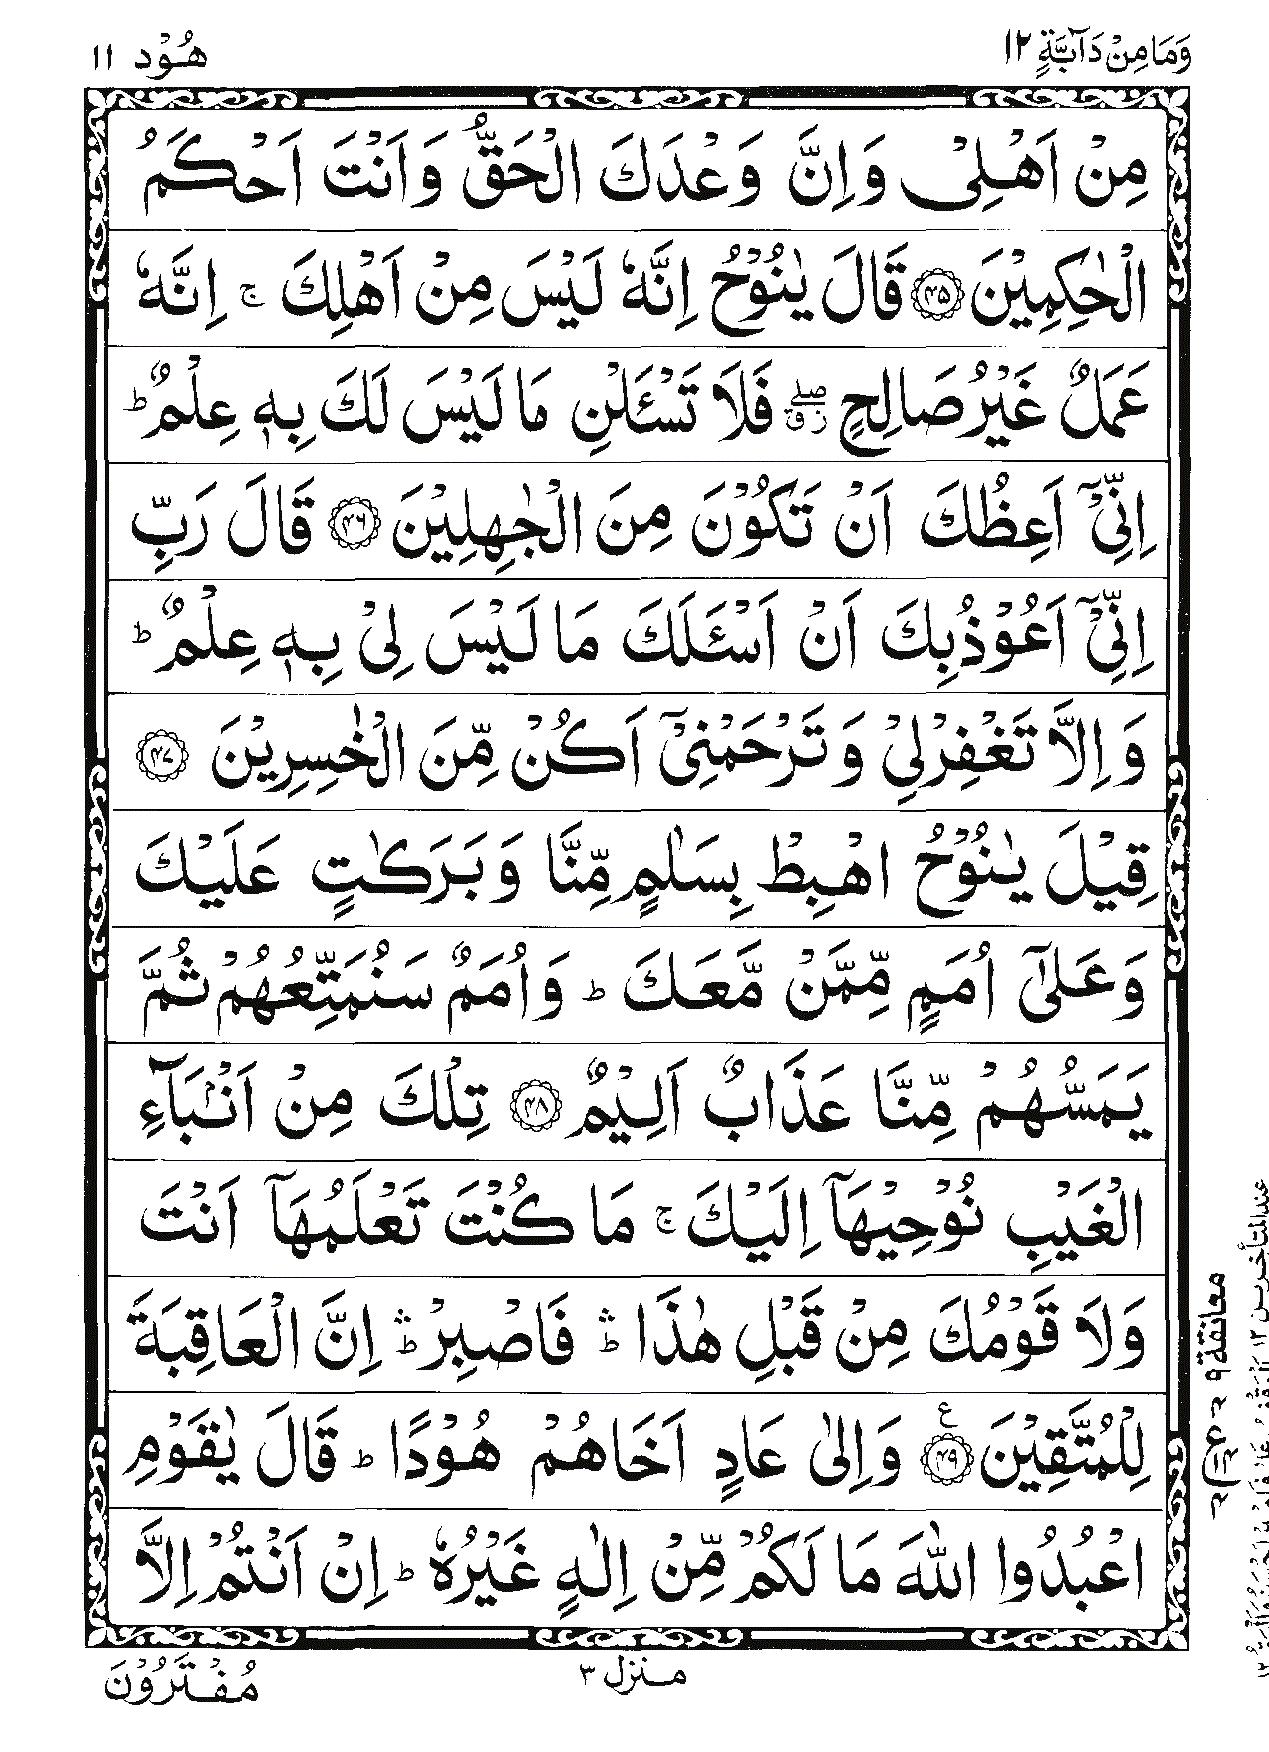 وَمَا مِنْ دَآبَّةٍ ١٢
هُوْد ١١
مِنْ اَهْلِىْ وَاِنَّ وَعْدَكَ الْحَقُّ وَاَنْتَ اَحْكَمُ
الْحٰكِمِيْنَ ﴿٤٥﴾ قَالَ يٰنُوْحُ اِنَّهٗ لَيْسَ مِنْ اَهْلِكَ ۚ اِنَّهٗ
عَمَلٌ غَيْرُ صَالِحٍ ۖ فَلَا تَسْـَٔلْنِ مَا لَيْسَ لَكَ بِهٖ عِلْمٌ ؕ
اِنِّىْٓ اَعِظُكَ اَنْ تَكُوْنَ مِنَ الْجٰهِلِيْنَ ﴿٤٦﴾ قَالَ رَبِّ
اِنِّىْٓ اَعُوْذُ بِكَ اَنْ اَسْـَٔلَكَ مَا لَيْسَ لِىْ بِهٖ عِلْمٌ ؕ
وَاِلَّا تَغْفِرْ لِىْ وَتَرْحَمْنِىْٓ اَكُنْ مِّنَ الْخٰسِرِيْنَ ﴿٤٧﴾
قِيْلَ يٰنُوْحُ اهْبِطْ بِسَلٰمٍ مِّنَّا وَبَرَكٰتٍ عَلَيْكَ
وَعَلٰٓى اُمَمٍ مِّمَّنْ مَّعَكَ ؕ وَاُمَمٌ سَنُمَتِّعُهُمْ ثُمَّ
يَمَسُّهُمْ مِّنَّا عَذَابٌ اَلِيْمٌ ﴿٤٨﴾ تِلْكَ مِنْ اَنْۢبَآءِ
الْغَيْبِ نُوْحِيْهَآ اِلَيْكَ ۚ مَا كُنْتَ تَعْلَمُهَآ اَنْتَ
وَلَا قَوْمُكَ مِنْ قَبْلِ هٰذَا ۛؕ فَاصْبِرْ ۛؕ اِنَّ الْعَاقِبَةَ
لِلْمُتَّقِيْنَ ﴿٤٩﴾ ع وَاِلٰى عَادٍ اَخَاهُمْ هُوْدًا ؕ قَالَ يٰقَوْمِ
اعْبُدُوا اللّٰهَ مَا لَكُمْ مِّنْ اِلٰهٍ غَيْرُهٗ ؕ اِنْ اَنْتُمْ اِلَّا
منزل ٣
مُفْتَرُوْنَ
معانقة ٩
عند المتأخرين ١٢